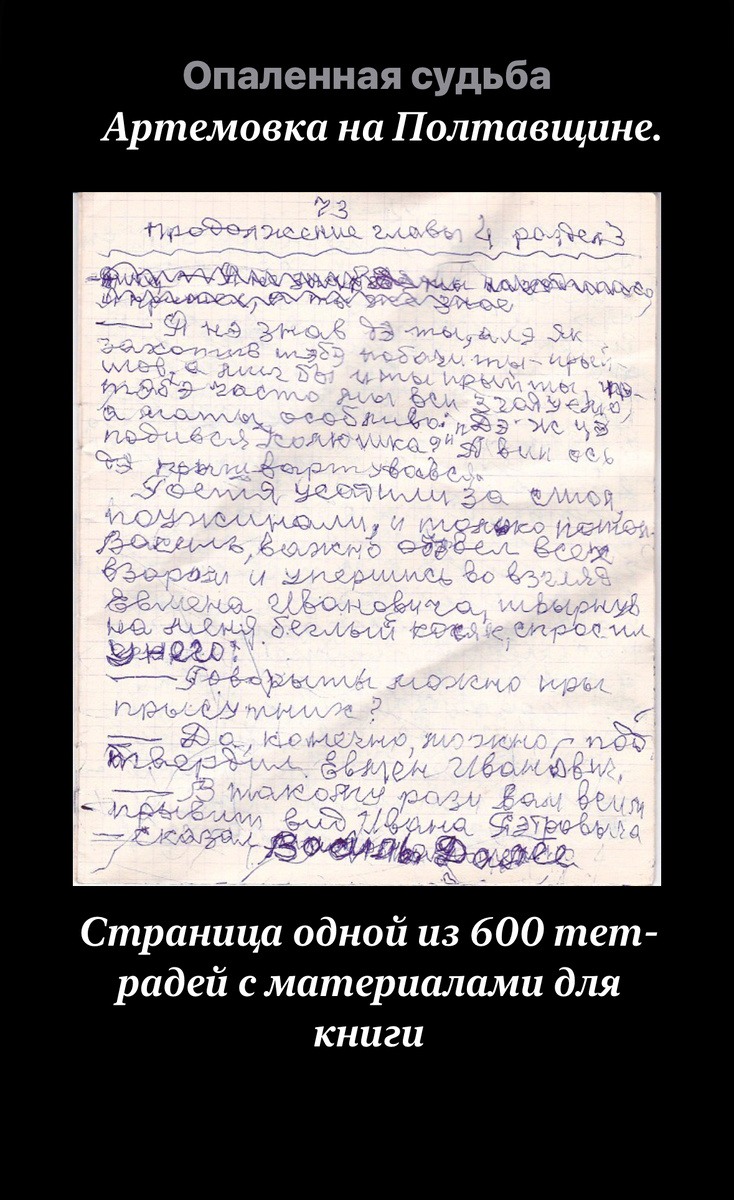 Опаленная судьба
Артемовка на Полтавщине.
73
продолжение главы 4 раздел 3
— Я нэ знав дэ ты, алэ як
захотив тэбэ побачыты - прый-
шов, а миг бы и ты прыйты,
тэбэ часто мы вси згадуемо,
а маты особливо: "Дэ ж цэ
подився Колюшка?" А вин ось
дэ пришвартувався.
Гостя усадили за стол,
поужинали, и только потом
Васыль, важно обвел всех
взором и упершись во взгляд
Евмена Ивановича, швырнув
на меня беглый косяк, спросил
у него:
— Говорыты можно пры
прысутних?
— Да, конечно, можно, - под
твердил Евмен Иванович.
— В такому рази вам всим
прывит вид Ивана Пэтровыча
— сказал Васыль Далее
Страница одной из 600 тет-
радей с материалами для
книги